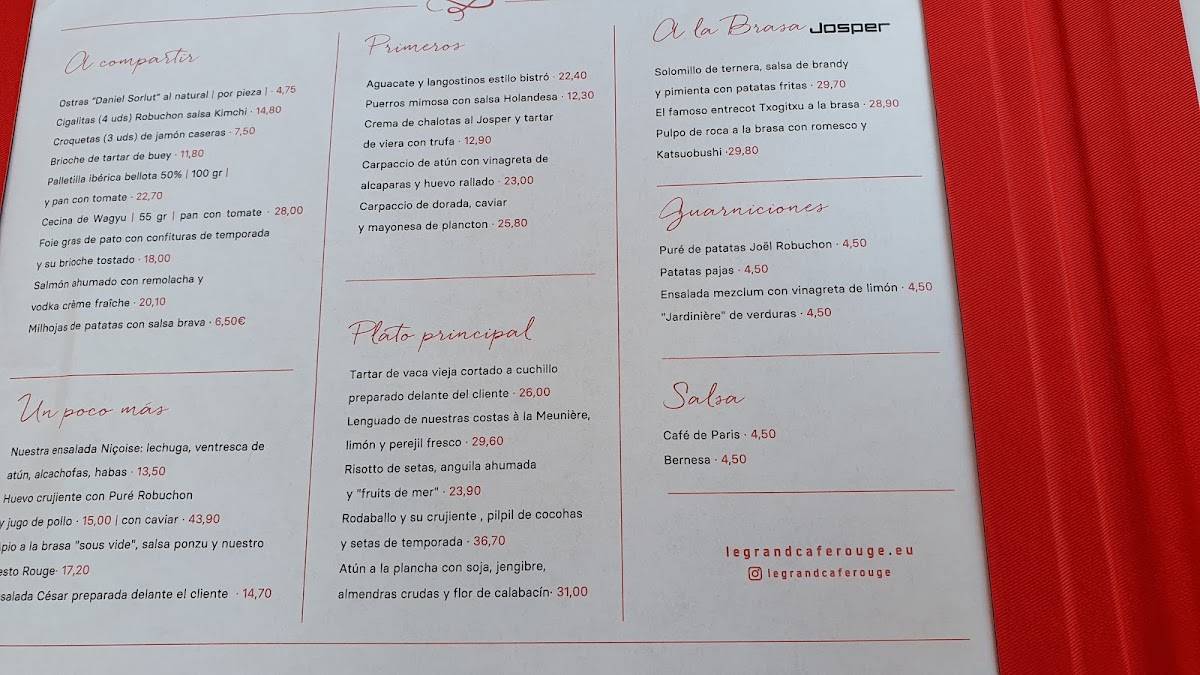 A compartir
Ostras "Daniel Sorlut" al natural | por pieza | · 4,75
Cigalitas (4 uds) Robuchon salsa Kimchi · 14,80
Croquetas (3 uds) de jamón caseras · 7,50
Brioche de tartar de buey · 11,80
Palletilla ibérica bellota 50% | 100 gr |
y pan con tomate · 22,70
Cecina de Wagyu | 55 gr | pan con tomate · 28,00
Foie gras de pato con confituras de temporada
y su brioche tostado · 18,00
Salmón ahumado con remolacha y
vodka crème fraîche · 20,10
Milhojas de patatas con salsa brava · 6,50€
Un poco más
Nuestra ensalada Niçoise: lechuga, ventresca de
atún, alcachofas, habas · 13,50
Huevo crujiente con Puré Robuchon
y jugo de pollo · 15,00 | con caviar · 43,90
a la brasa "sous vide", salsa ponzu y nuestro
Rouge· 17,20
César preparada delante el cliente · 14,70
Primeros
Aguacate y langostinos estilo bistró · 22,40
Puerros mimosa con salsa Holandesa · 12,30
Crema de chalotas al Josper y tartar
de viera con trufa · 12,90
Carpaccio de atún con vinagreta de
alcaparras y huevo rallado · 23,00
Carpaccio de dorada, caviar
y mayonesa de plancton · 25,80
Plato principal
Tartar de vaca vieja cortado a cuchillo
preparado delante del cliente · 26,00
Lenguado de nuestras costas à la Meunière,
limón y perejil fresco · 29,60
Risotto de setas, anguila ahumada
y "fruits de mer" · 23,90
Rodaballo y su crujiente , pilpil de cocohas
y setas de temporada · 36,70
Atún a la plancha con soja, jengibre,
almendras crudas y flor de calabacín· 31,00
A la Brasa Josper
Solomillo de ternera, salsa de brandy
y pimienta con patatas fritas · 29,70
El famoso entrecot Txogitxu a la brasa · 28,90
Pulpo de roca a la brasa con romesco y
Katsuobushi ·29,80
Guarniciones
Puré de patatas Joël Robuchon · 4,50
Patatas pajas · 4,50
Ensalada mezclum con vinagreta de limón · 4,50
"Jardinière" de verduras · 4,50
Salsa
Café de Paris · 4,50
Bernesa · 4,50
legrandcaferouge.eu
legrandcaferouge